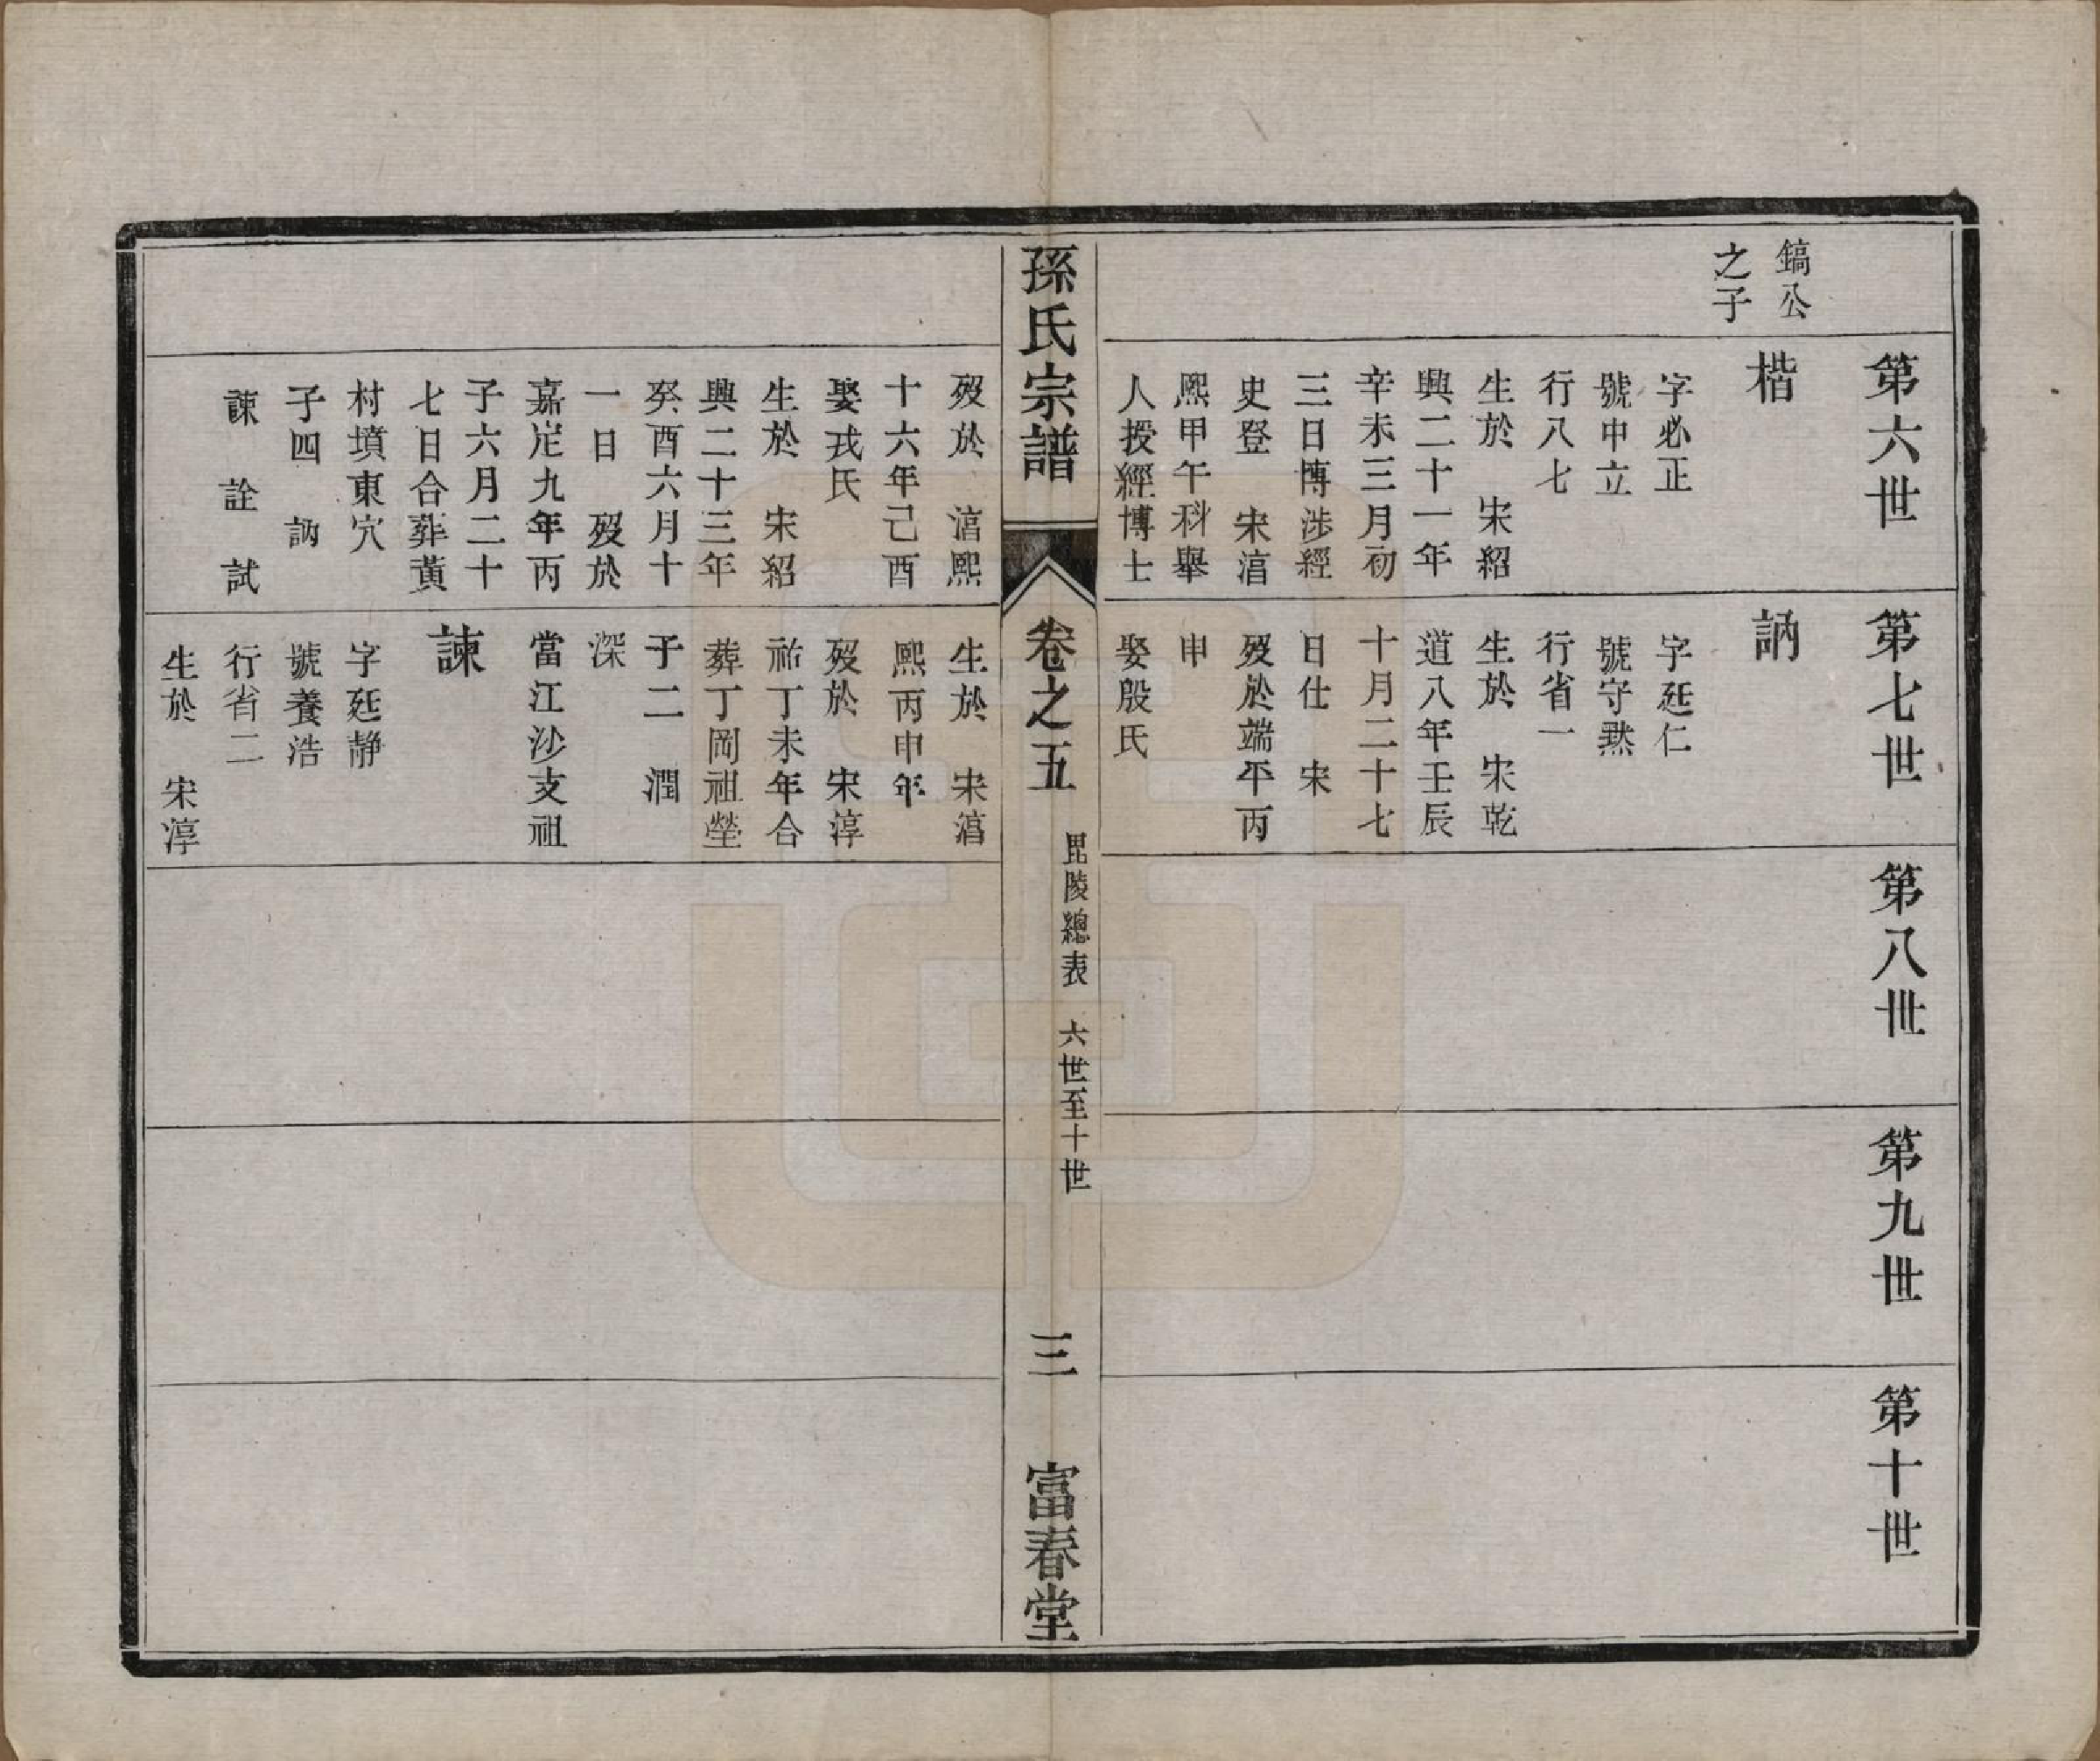 鎬公
之子
第六世
楷
字必正
號中立
行八七
生於　宋紹
興二十一年
辛未三月初
三日博涉經
史登　宋淳
熙甲午科舉
人授經博士
歿於　淳熙
十六年己酉
娶戎氏
生於　宋紹
興二十三年
癸酉六月十
一日　歿於
嘉定九年丙
子六月二十
七日合葬黃
村墳東穴
子四　訥
諫　詮　試
第七世
訥
字廷仁
號守黙
行省一
生於　宋乾
道八年壬辰
十月二十七
日仕　宋
歿於端平丙
申
娶殷氏
生於　宋淳
熙丙申年
歿於　宋淳
祐丁未年合
葬丁岡祖塋
子二　潤
深
當江沙支祖
諫
字廷靜
號養浩
行省二
生於　宋淳
第八世
第九世
第十世
孫氏宗譜
卷之五
毘陵總表　六世至十世
三
富春堂